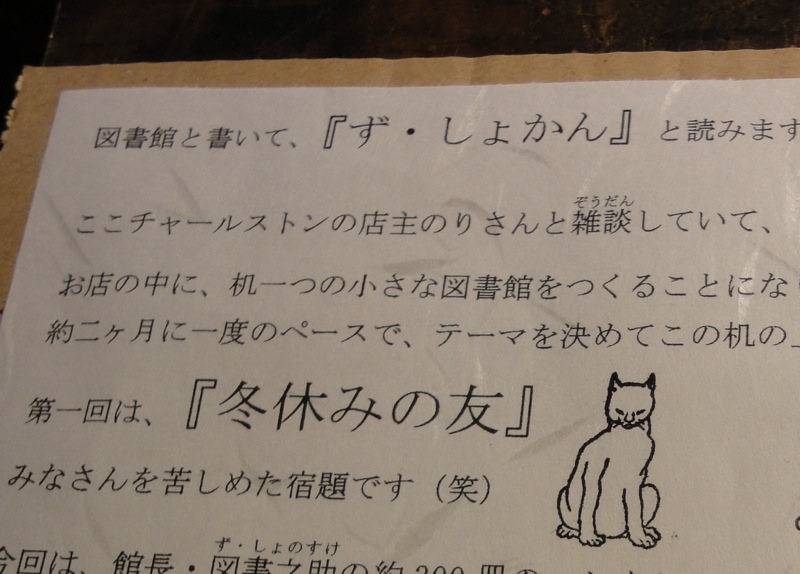 図書館と書いて、『ず・しょかん』と読みます
ぞうだん
ここチャールストンの店主のりさんと雑談していて、
お店の中に、机一つの小さな図書館をつくることにな
約二ヶ月に一度のペースで、テーマを決めてこの机の
第一回は、『冬休みの友』
みなさんを苦しめた宿題です（笑）
ず・しょのすけ
今回は、館長・図書之助の約300冊の